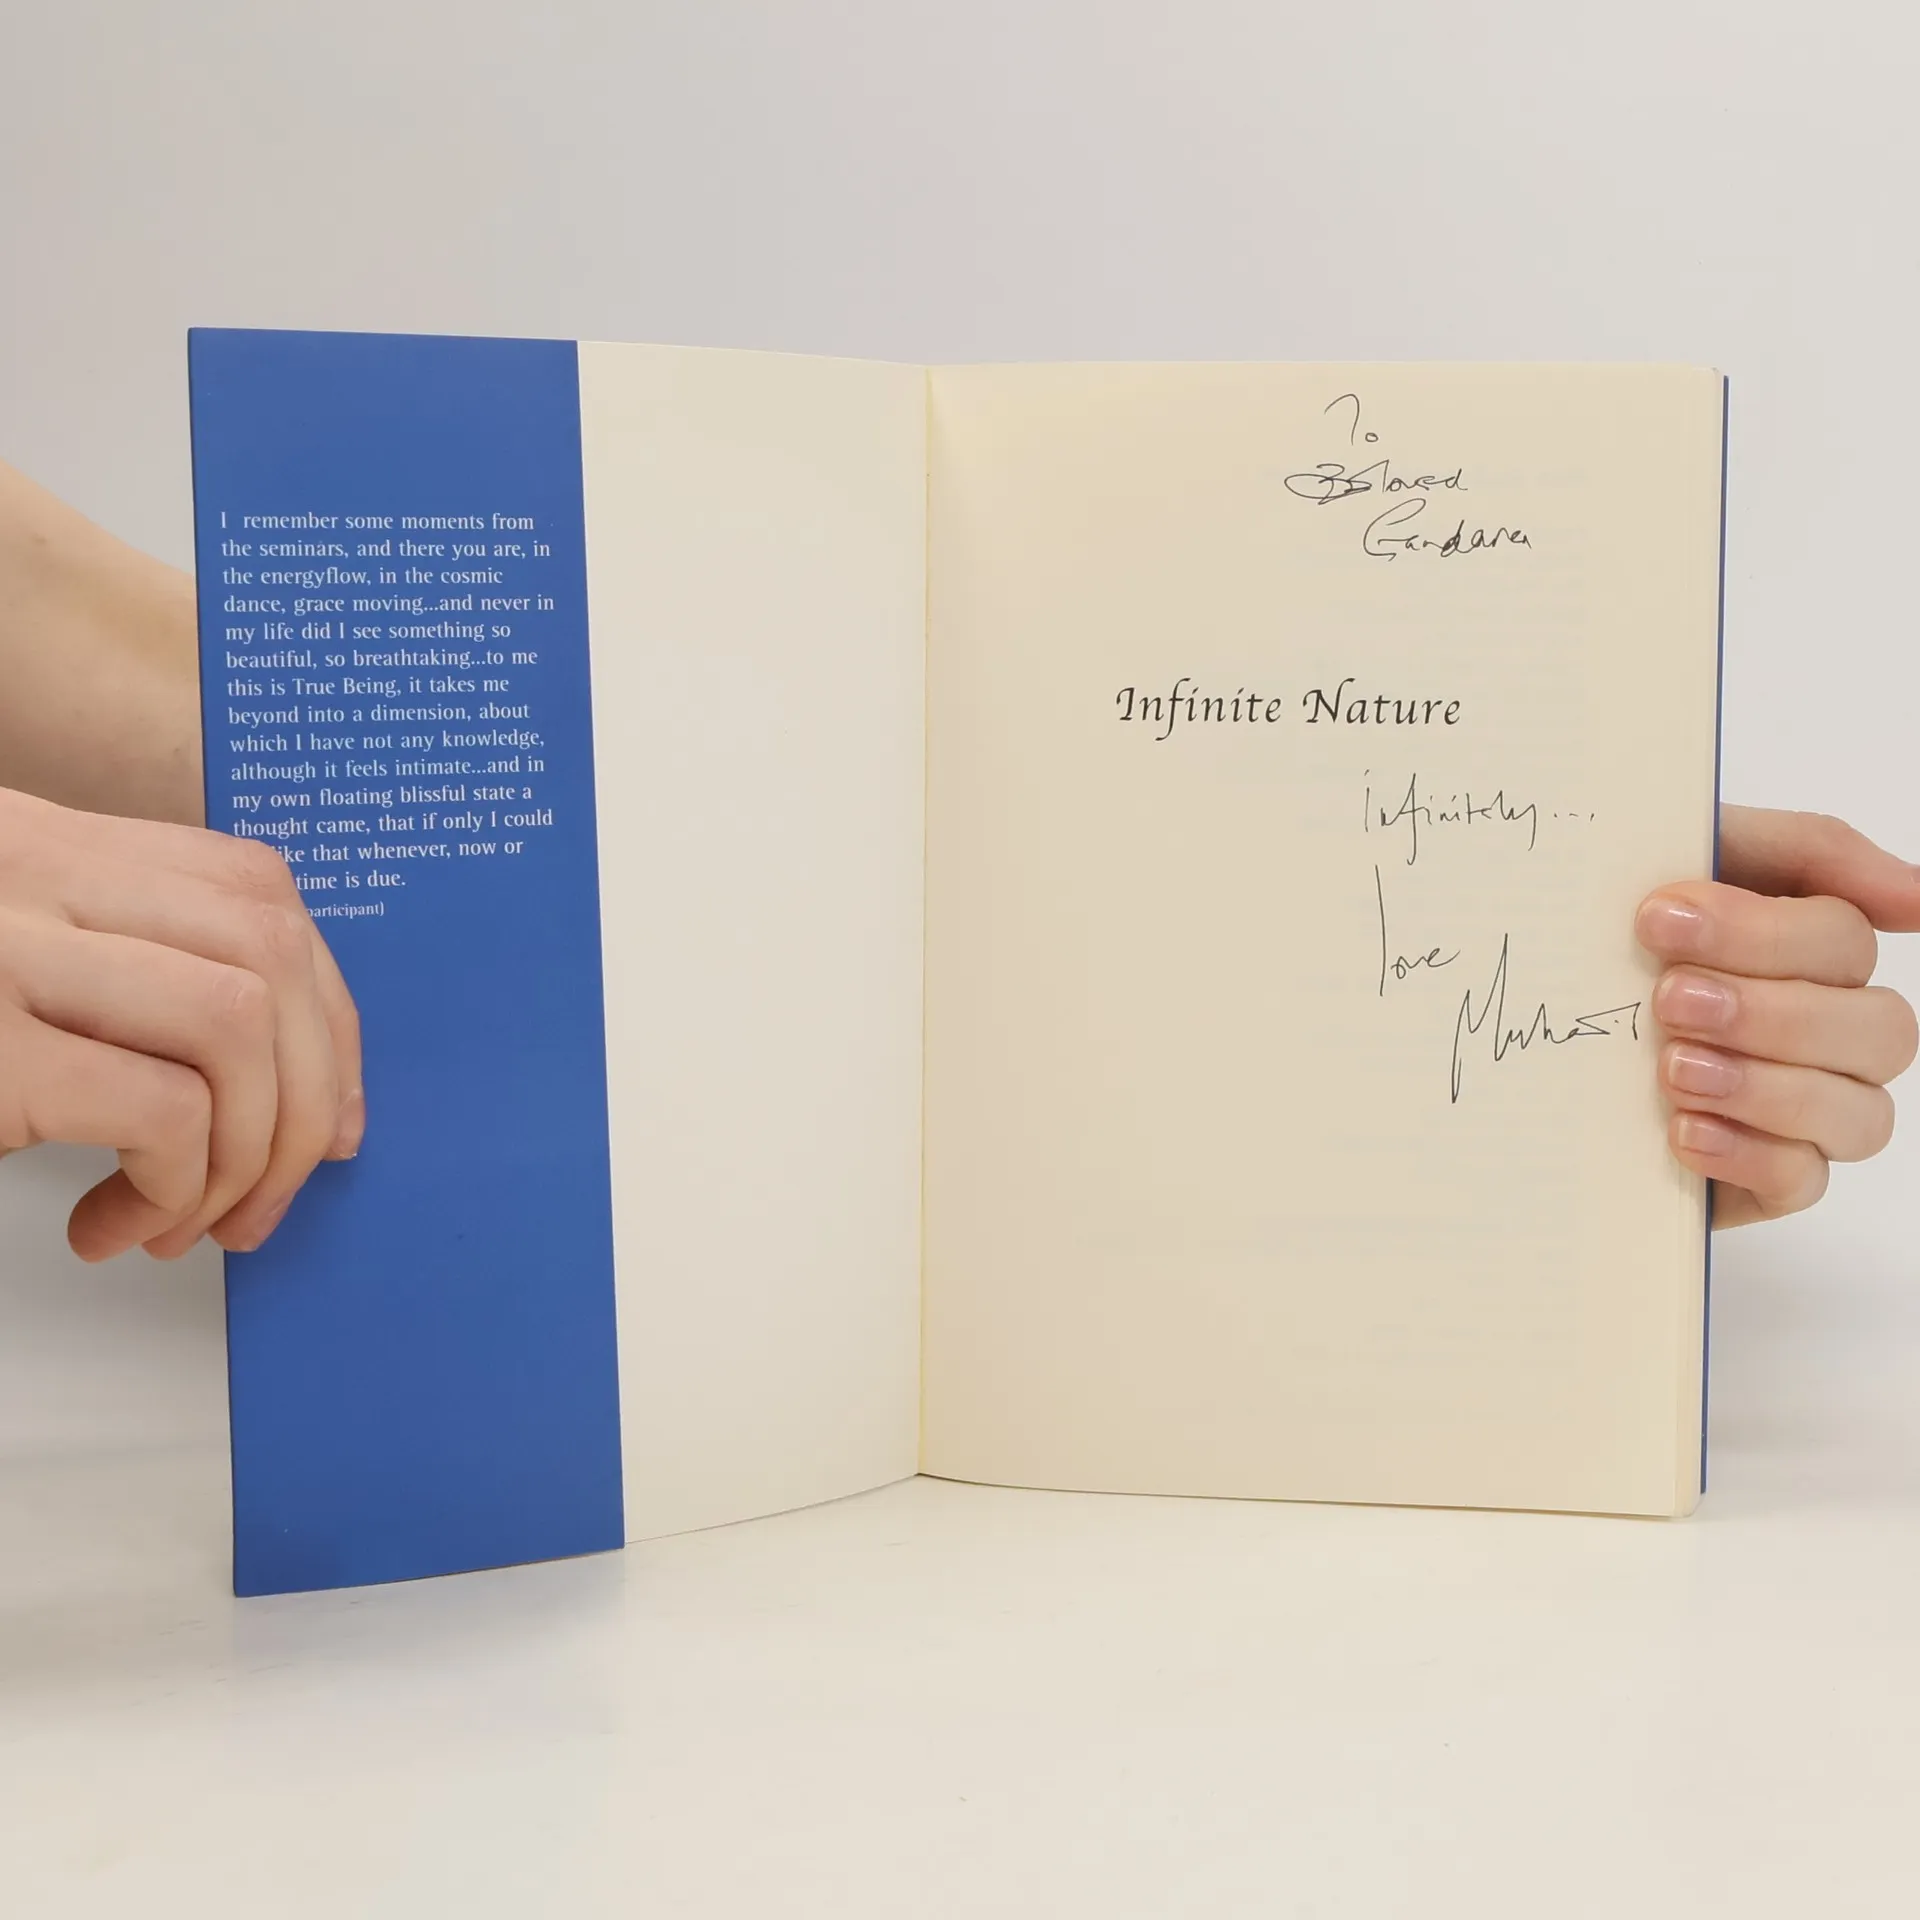 I remember some moments from
the seminars, and there you are, in
the energyflow, in the cosmic
dance, grace moving...and never in
my life did I see something so
beautiful, so breathtaking...to me
this is True Being, it takes me
beyond into a dimension, about
which I have not any knowledge,
although it feels intimate...and in
my own floating blissful state a
thought came, that if only I could
that whenever, now or
time is due.
participant)
To
Beloved
Infinite Nature
Infinitely...
love